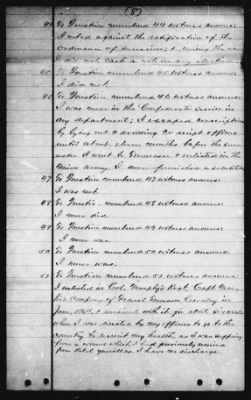 (8)
44 To Question numbered 44 witness answers:
I voted against the ratification of the
ordinance of secession, & during the war
I did not cast a vote in any election
45 To Question numbered 45 witness answers:
I did not.
46 To Question numbered 46 witness answers:
I was never in the Confederate service in
any department; I escaped conscription
by lying out & avoiding conscript officers
until about eleven months before the
when I went to Tennessee & enlisted in the
Union army. I never furnished a substitute
47 To Question numbered 47 witness answers:
I was not.
48 To Question numbered 48 witness answers:
I never did.
49 To Question numbered 49 witness answers:
I never was.
50 To Question numbered 50 witness answers:
I never was.
51 To Question numbered 51 witness answers:
I enlisted in Col. Regt. Capt.
Company of Tennessee Cavalry in
& remained with it for about six weeks
when I was directed by my officers to go to the
country to recruit my health, as I was suffering
from a wound which I had previously received
from Rebel guerillas. I have no discharge.